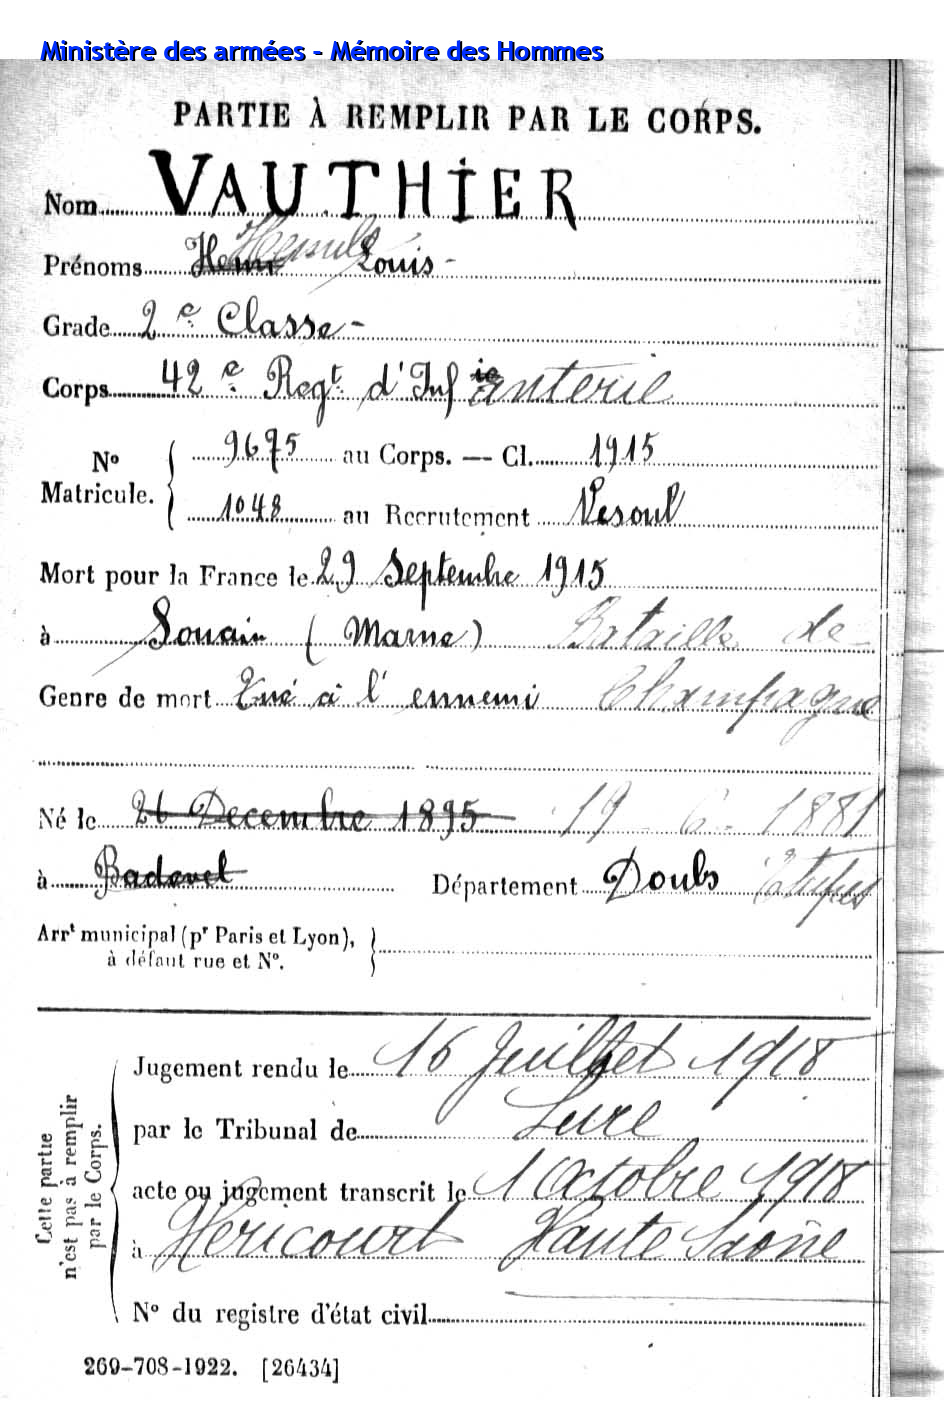 Ministère des armées - Mémoire des Hommes
PARTIE À REMPLIR PAR LE CORPS.
Nom VAUTHIER
Prénoms Henri Louis -
Grade 2e Classe -
Corps 42e Regt. d'Infanterie
No Matricule. 9675 au Corps. — Cl. 1915
1048 au Recrutement Vesoul
Mort pour la France le 29 Septembre 1915
à Souain (Marne) Bataille de
Genre de mort Tué à l'ennemi Champagne
Né le 26 Decembre 1895 19 - 6 - 1881
à Badevel Département Doubs Etupes
Arrt municipal (pr Paris et Lyon),
à défaut rue et No.
Cette partie n'est pas à remplir par le Corps.
Jugement rendu le 16 Juillet 1918
par le Tribunal de Lure
acte ou jugement transcrit le 1 Octobre 1918
à Héricourt Haute Saône
No du registre d'état civil
269-708-1922. [26434]